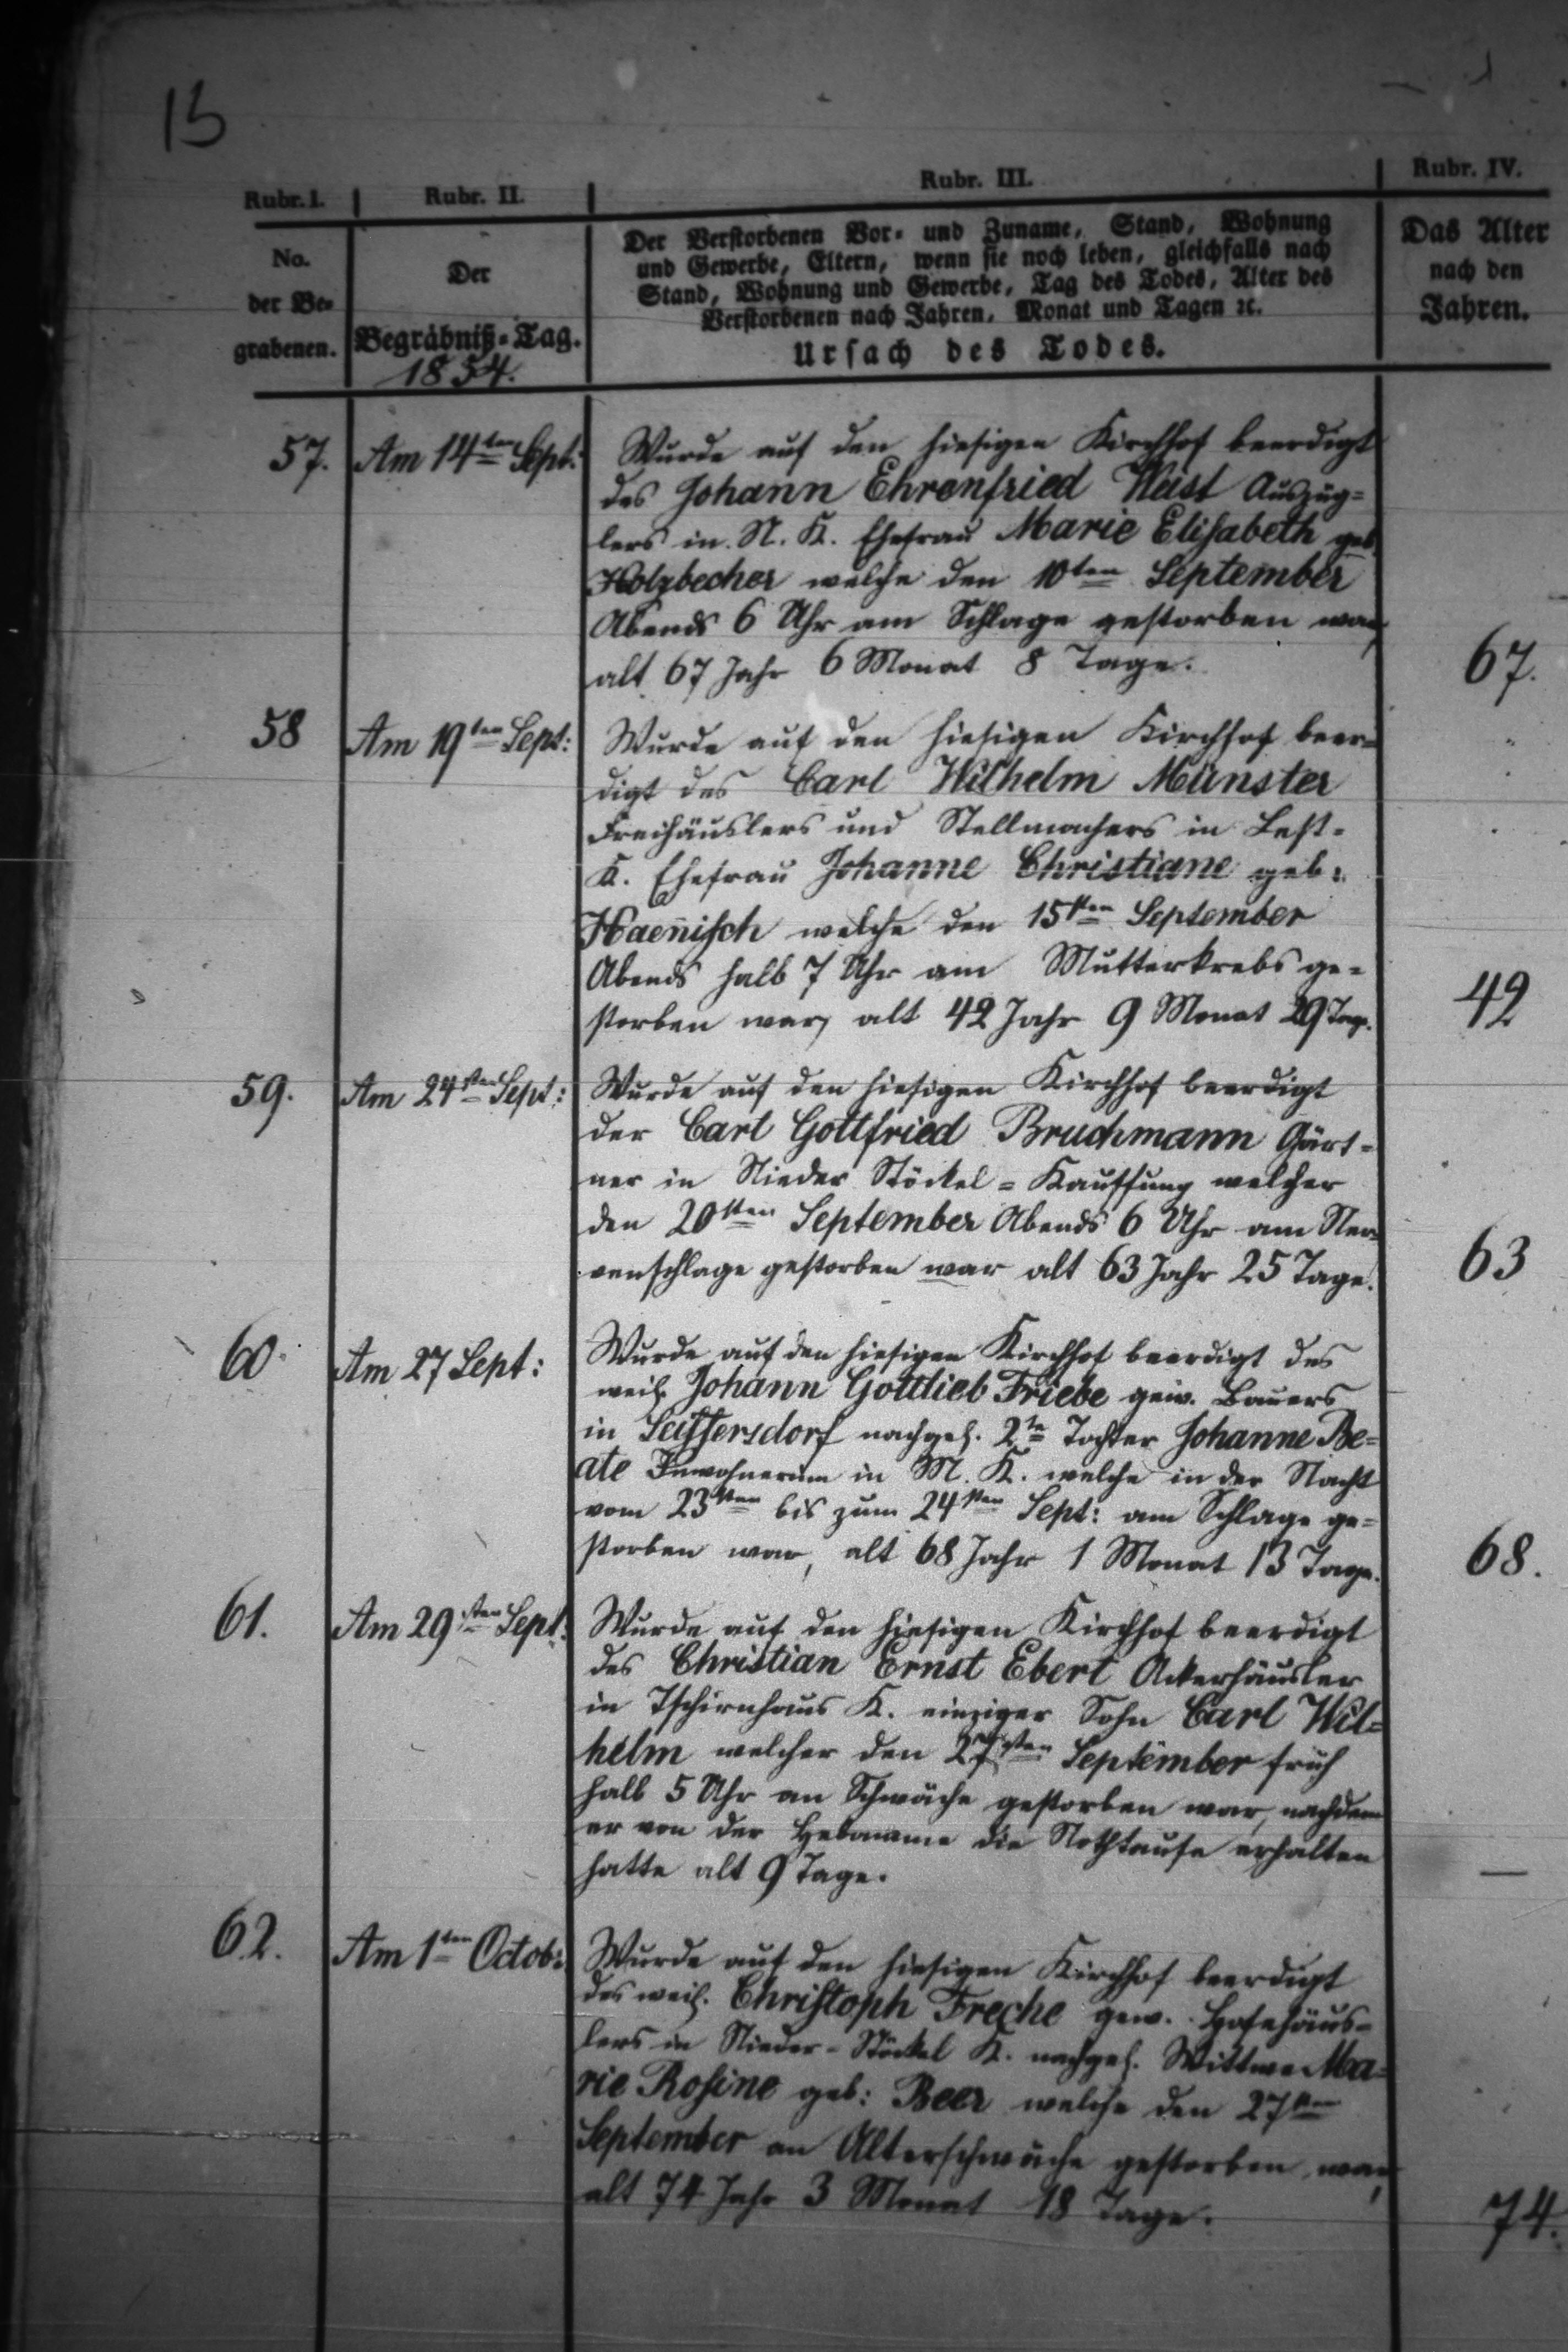 15
Rubr. I. Rubr. II. Rubr. III. Rubr. IV.
No.
der Be=
grabenen.
Der
Begräbniß=Tag.
1854.
Der Verstorbenen Vor= und Zuname, Stand, Wohnung
und Gewerbe, Eltern, wenn sie noch leben, gleichfalls nach
Stand, Wohnung und Gewerbe, Tag des Todes, Alter des
Verstorbenen nach Jahren, Monat und Tagen ꝛc.
Ursach des Todes.
Das Alter
nach den
Jahren.
57. Am 14ten Sept: Wurde auf den hiesigen Kirchhof beerdigt
des Johann Ehrenfried Weist Auszüg=
lers in N. K. Ehefrau Marie Elisabeth geb.
Holzbecher welche den 10ten September
Abends 6 Uhr am Schlage gestorben war,
alt 67 Jahr 6 Monat 8 Tage. 67.
58 Am 19ten Sept: Wurde auf den hiesigen Kirchhof beer=
digt des Carl Wilhelm Münster
Freihäuslers und Stellmachers in Lest=
K. Ehefrau Johanne Christiane geb:
Haenisch welche den 15ten September
Abends halb 7 Uhr am Mutterkrebs ge=
storben war, alt 42 Jahr 9 Monat 29 Tage. 42
59. Am 24sten Sept: Wurde auf den hiesigen Kirchhof beerdigt
der Carl Gottfried Bruchmann Gärt=
ner in Nieder Stöckel=Kauffung welcher
den 20sten September Abends 6 Uhr am Ner=
venschlage gestorben war alt 63 Jahr 25 Tage. 63
60. Am 27 Sept: Wurde auf den hiesigen Kirchhof beerdigt des
weil. Johann Gottlieb Friebe gew. Bauers
in Seiffersdorf nachgel. 2te Tochter Johanne Be=
ate Inwohnerin in M. K. welche in der Nacht
vom 23sten bis zum 24sten Sept: am Schlage ge=
storben war, alt 68 Jahr 1 Monat 13 Tage. 68.
61. Am 29sten Sept: Wurde auf den hiesigen Kirchhof beerdigt
des Christian Ernst Ebert Ackerhäusler
in Tschirnhaus K. einziger Sohn Carl Wil=
helm welcher den 27sten September früh
halb 5 Uhr an Schwäche gestorben war, nachdem
er von der Hebamme die Nothtaufe erhalten
hatte alt 9 Tage. —
62. Am 1ten Octob: Wurde auf den hiesigen Kirchhof beerdigt
des weil. Christoph Freche gew. Hofehäus=
lers in Nieder=Stöckel K. nachgel. Wittwe Ma=
rie Rosine geb: Beer welche den 27sten
September an Alterschwäche gestorben war,
alt 74 Jahr 3 Monat 18 Tage. 74.